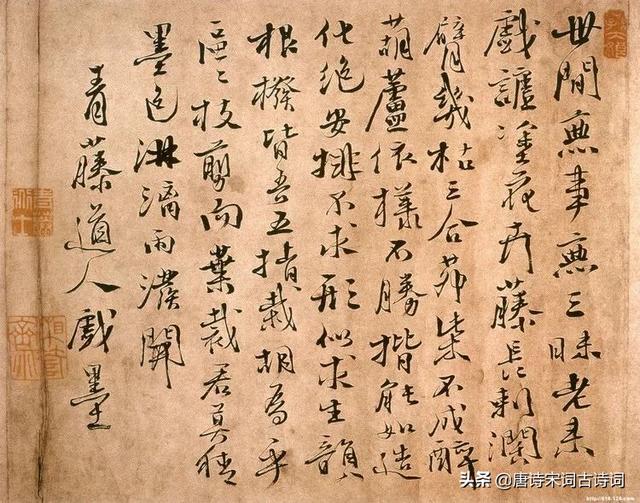 世間無事無三昧老来
戲謔塗花卉藤長刺濶
臂幾枯三合茆柴不成醉
葫蘆依樣不勝揩能如造
化絶安排不求形似求生韻
根撥皆吾五指栽胡爲乎
區〻枝剪而葉裁君莫猜
墨色淋漓雨潑開
青藤道人戲墨
头条 @唐诗宋词古诗词